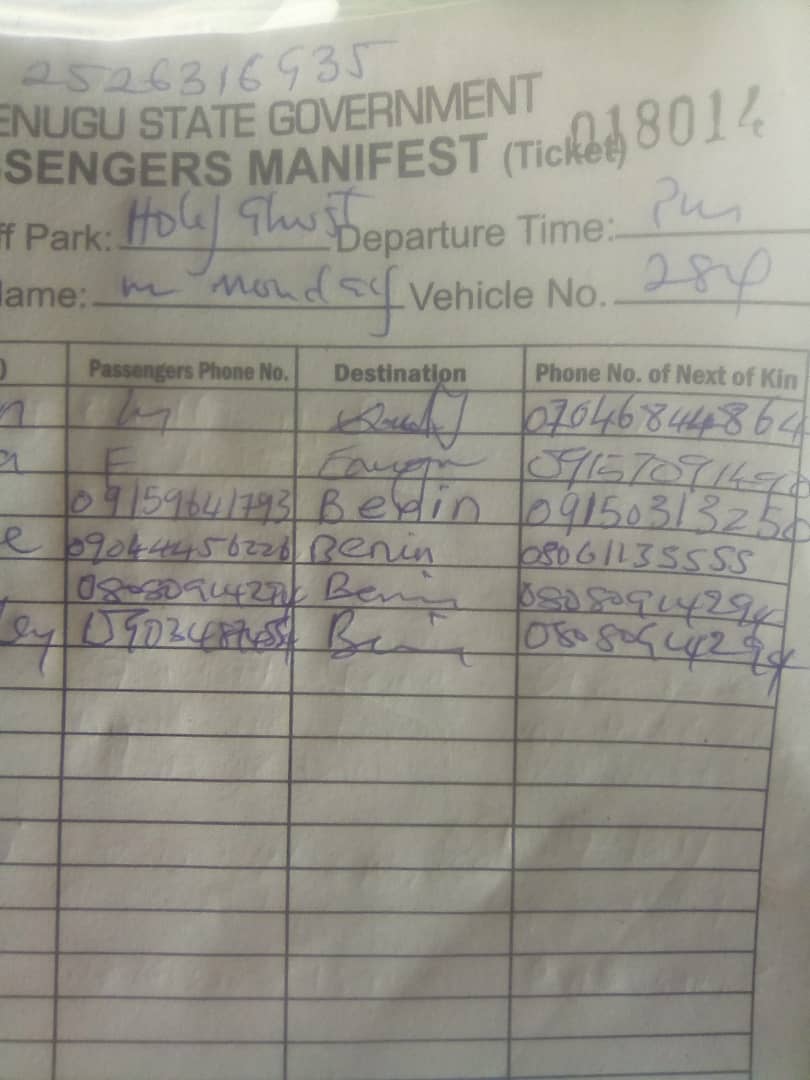 2526316935
ENUGU STATE GOVERNMENT
SSENGERS MANIFEST (Ticket) 018014
ff Park: Holy Ghost Departure Time: Pm
Name: m monday Vehicle No. 284
) Passengers Phone No. Destination Phone No. of Next of Kin
n 07046844864
a F
09159641793 Benin 0915031325
e 09044456226 Benin 08061135555
08080914294 Benin 08080914294
ey Benin 08080914294